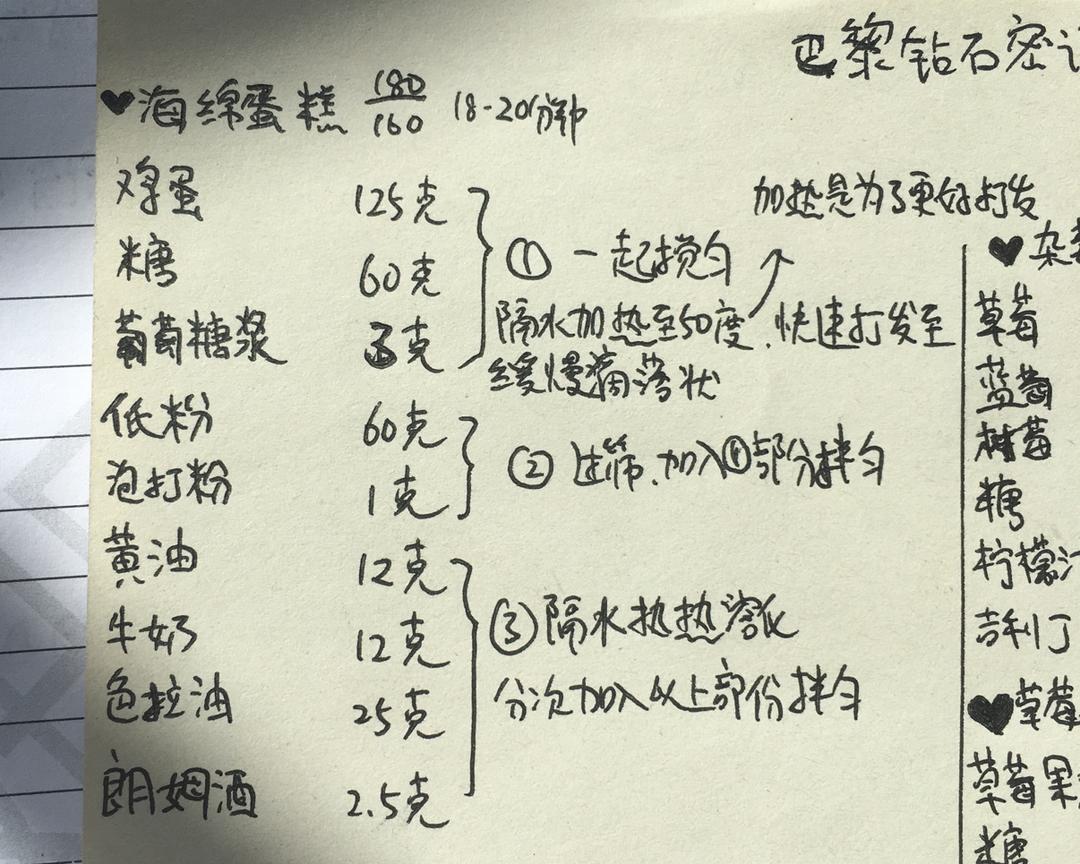 巴黎钻石密
♥海绵蛋糕 180/160 18-20分钟
鸡蛋 125克
糖 60克
葡萄糖浆 3克
① 一起搅匀
加热是为了更好打发
隔水加热至50度、快速打发至
缓慢滴落状
低粉 60克
泡打粉 1克
② 过筛、加入①部分拌匀
黄油 12克
牛奶 12克
色拉油 25克
朗姆酒 2.5克
③ 隔水加热溶化
分次加入以上部份拌匀
♥杂
草莓
蓝莓
树莓
糖
柠檬汁
吉利丁
♥草莓
草莓果
糖